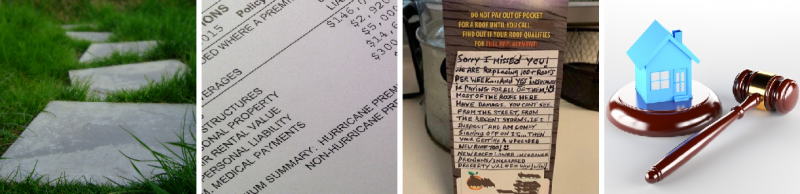 IONS
2015 Policy
DED WHERE A PREMI
LIA
$146,0
$2,920
$5,0
$14,6
$300
ERAGES
STRUCTURES
ONAL PROPERTY
R RENTAL VALUE
PERSONAL LIABILITY
MEDICAL PAYMENTS
UM SUMMARY: HURRICANE PREM
NON-HURRICANE PREM
DO NOT PAY OUT OF POCKET
FOR A ROOF UNTIL YOU CALL.
FIND OUT IF YOUR ROOF QUALIFIES
FOR FULL REPLACEMENT!
Sorry I missed you!
WE ARE Replacing 100+ ROOFS
PER WEEK...AND YES INSURANCE
is PAYING FOR ALL OF THEM!
MOST OF THE ROOFS HERE
HAVE DAMAGE. YOU CAN'T SEE
FROM THE STREET, FROM
THE RECENT STORMS. LET I
INSPECT AND AM COMPY
SIGNING OFF ON IT... THEN
YOUR GETTING A UPGRADED
NEW ROOF TOO!
NEW ROOF = LOWER INSURANCE
PREMIUMS/INCREASED
PROPERTY VALUE = WIN/WIN!